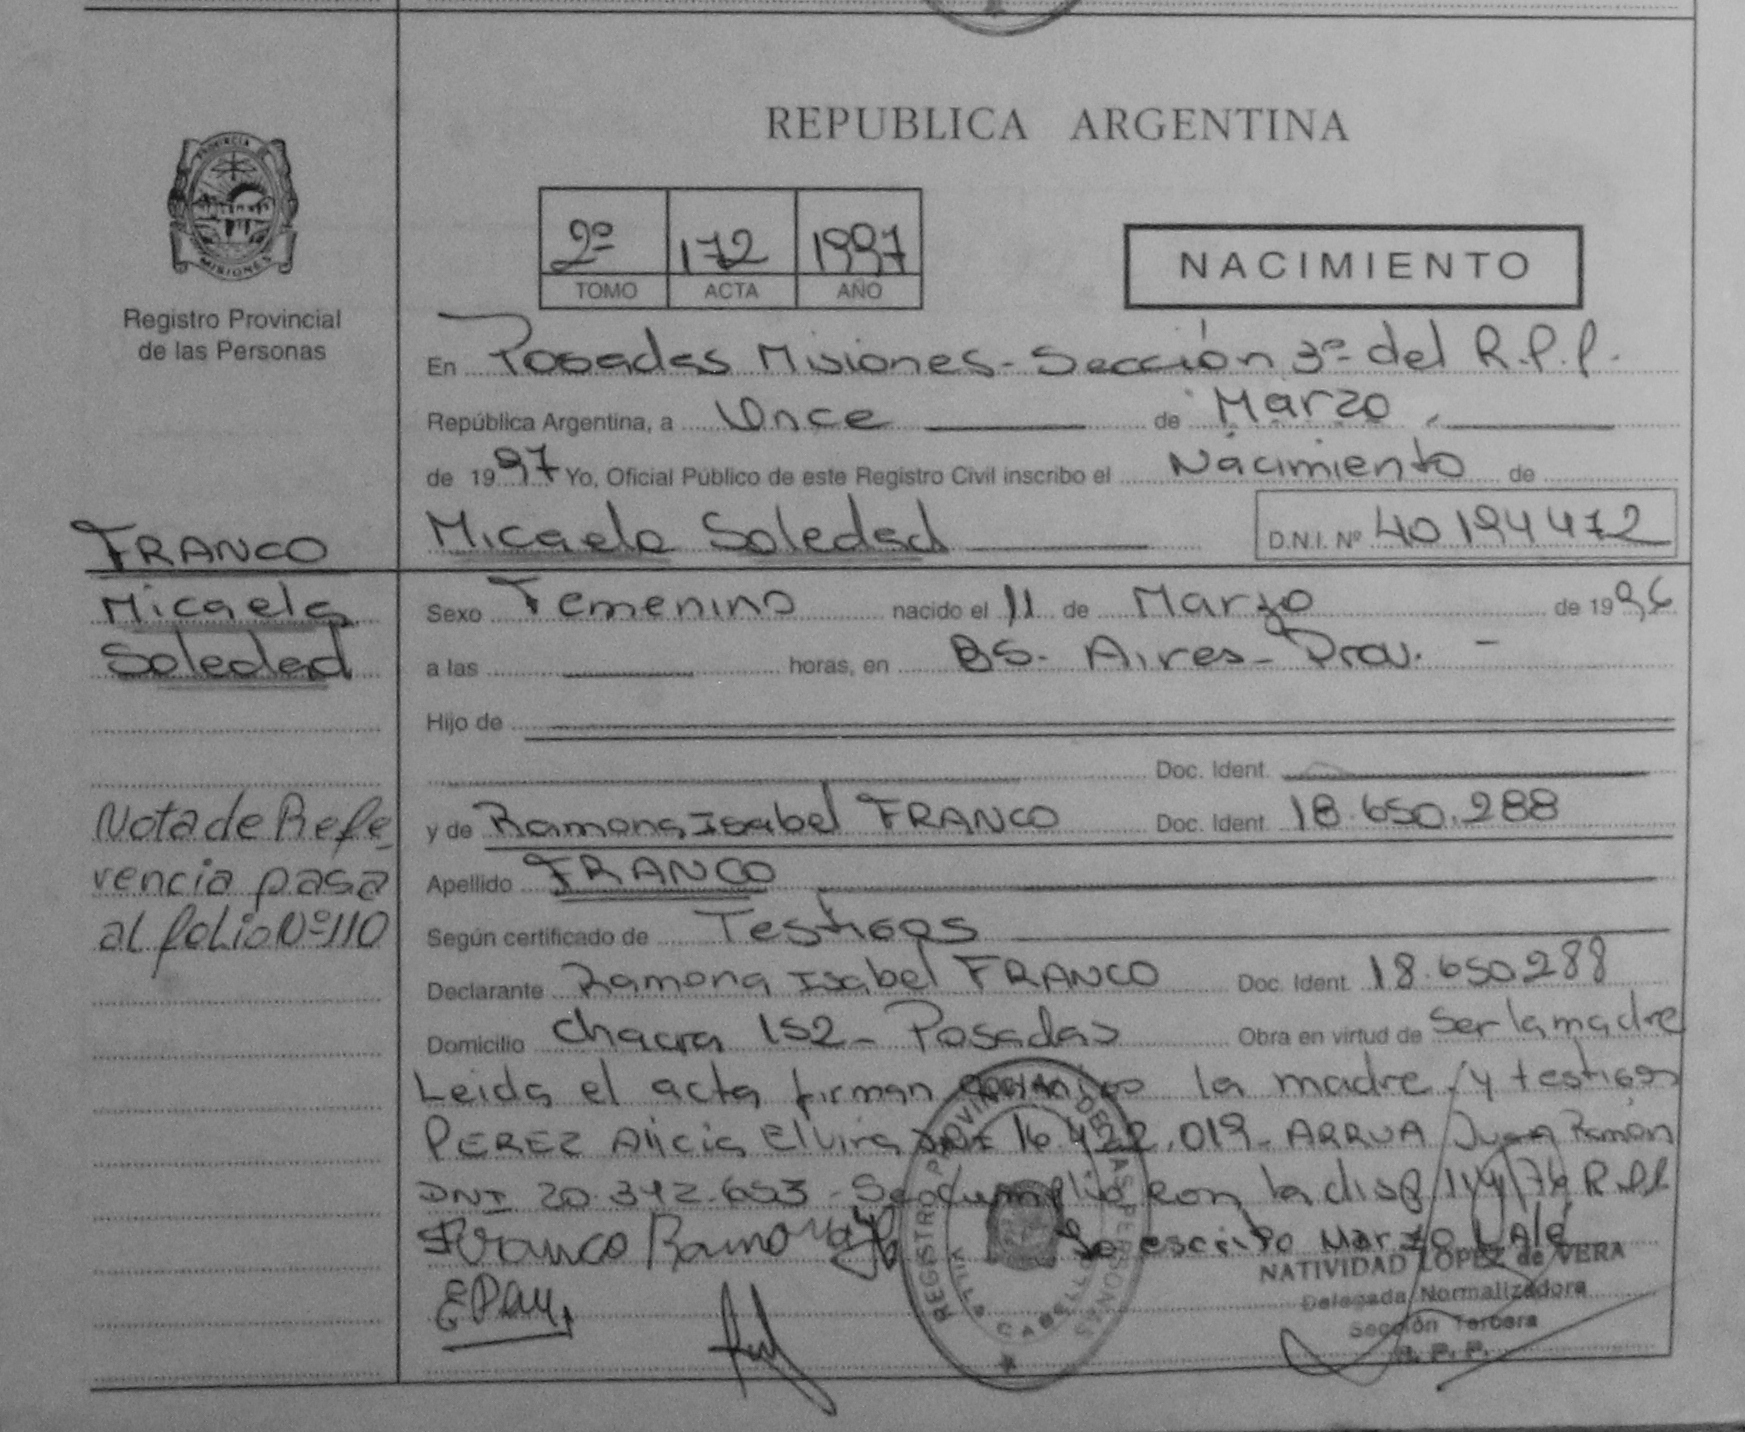 REPUBLICA ARGENTINA
PROVINCIA DE
MISIONES
Registro Provincial
de las Personas
2º 172 1997
TOMO ACTA AÑO
NACIMIENTO
En Posadas Misiones - Sección 3º del R.P.P.
República Argentina, a Once de Marzo
de 1997 Yo, Oficial Público de este Registro Civil inscribo el Nacimiento de
Micaela Soledad D.N.I. Nº 40194472
FRANCO
Micaela
Soledad
Sexo Femenino nacido el 11 de Marzo de 1996
a las horas, en BS. Aires - Prov. -
Hijo de
Doc. Ident.
y de Ramona Isabel FRANCO Doc. Ident. 18.650.288
Apellido FRANCO
Según certificado de Testigos
Declarante Ramona Isabel FRANCO Doc. Ident. 18.650.288
Domicilio Chacra 152 - Posadas Obra en virtud de Ser la madre
Nota de Refe-
rencia pasa
al folio Nº 110
Leida el acta firman la madre y testigos
PEREZ Alicia Elvira DNI 16.422.019 - ARRUA Juan Ramón
DNI 20.342.653 - Se cumplio con la disp 114/76 R.P.P
So escrito Marzo Vale
Franco Ramona
REGISTRO PROVINCIAL DE LAS PERSONAS
VILLA CABELLO
NATIVIDAD LOPEZ de VERA
Delegada Normalizadora
Sección Tercera
R. P. P.